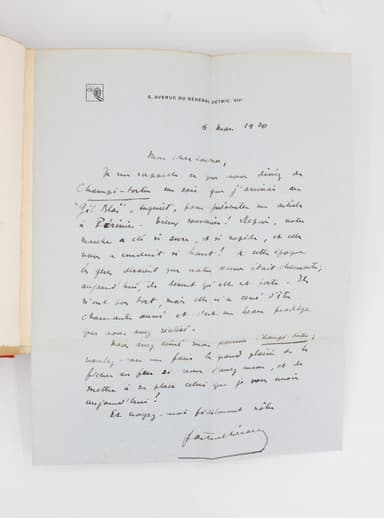 6, AVENUE DU GÉNÉRAL DÉTRIE. VIIᴱ
6 mars 1930
Mon cher
Je me rappelle ce que vous disiez de
Champi-Tortu un soir que j'arrivais au
"Gil Blas", inquiet, pour présenter un article
à Périvier. Vieux souvenirs! Depuis, notre
marche a été si sure, et si rapide, et elle
vous a conduit si haut! A cette époque
les gens disaient que notre sœur était charmante;
aujourd'hui, ils disent qu'elle est forte. Ils
n'ont pas tort, mais elle n'a cessé d'être
charmante aussi et c'est un beau prodige
que vous avez réalisé.
Vous avez aimé mon pauvre Champi-Tortu;
voulez-vous me faire le grand plaisir de le
ficher au feu si vous l'avez encore, et de
mettre à sa place celui que je vous envoie
aujourd'hui!
Et croyez-moi fidèlement vôtre
Gaston Chérau